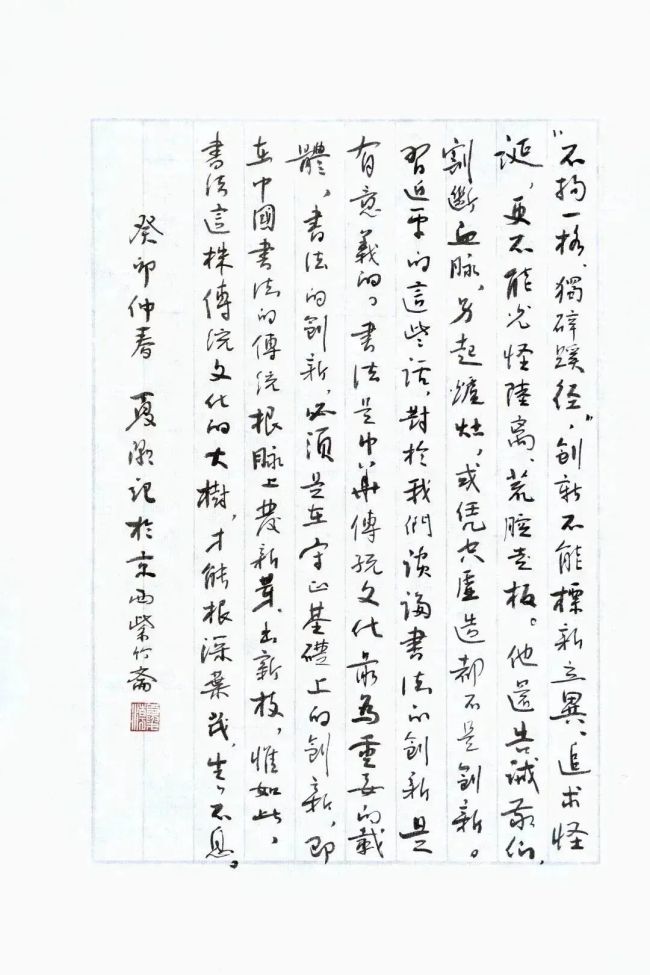 “不拘一格、獨辟蹊径，”創新不能標新立異、追求怪
誕，更不能光怪陸离、荒腔走板。他還告诫我们，
割斷血脉，另起爐灶，或凭空虛造都不是創新。
習近平的這些话，對於我們谈論書法的創新是
有意義的。書法是中華傳统文化最為重要的載
體，書法的創新，必須是在守正基礎上的創新，即
在中國書法的傳统根脉上發新芽、出新枝，惟如此，
書法這株傳统文化的大樹，才能根深葉茂，生々不息。
癸卯仲春 夏 记於京西紫竹齋